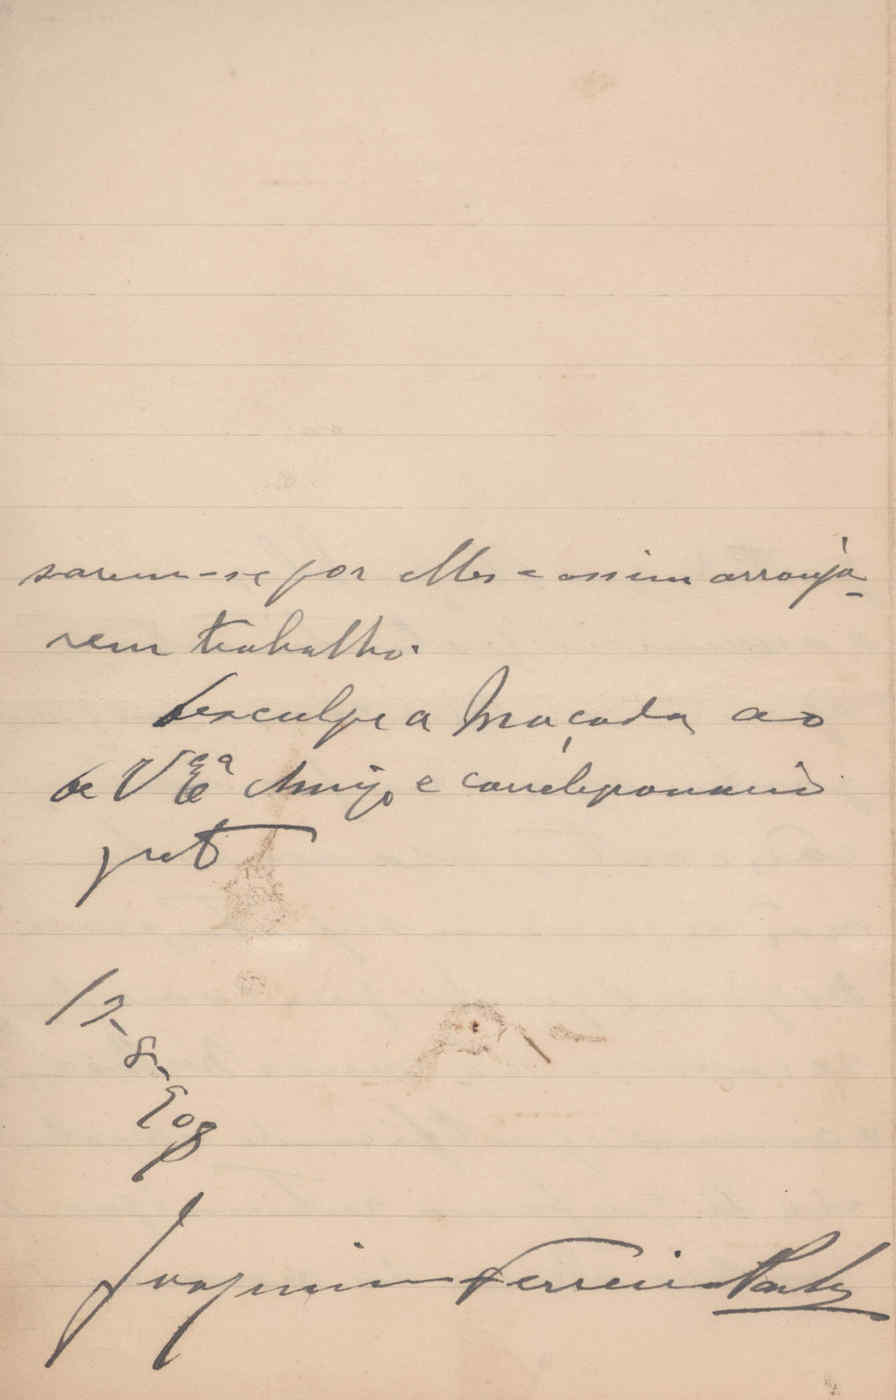 sarem-se por elles e assim arranja-
rem trabalho.
Desculpe a Maçada ao
de V Exª Amigo e corréligionario
grato
12-8-908
Joaquim Ferreira